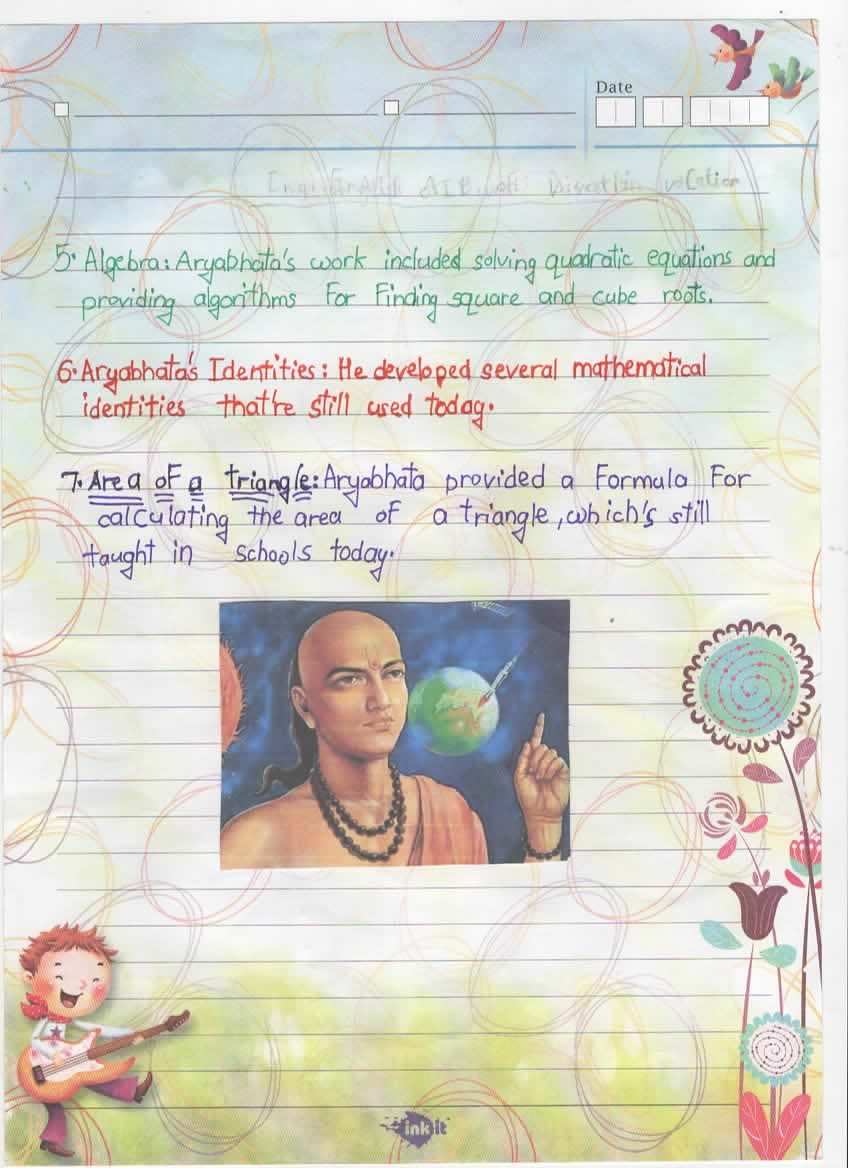 Date
5. Algebra: Aryabhata's work included solving quadratic equations and
providing algorithms For Finding square and cube roots.
6. Aryabhata's Identities: He developed several mathematical
identities that're still used today.
7. Area of a triangle: Aryabhata provided a Formula For
calculating the area of a triangle, which's still
taught in schools today.
ink it